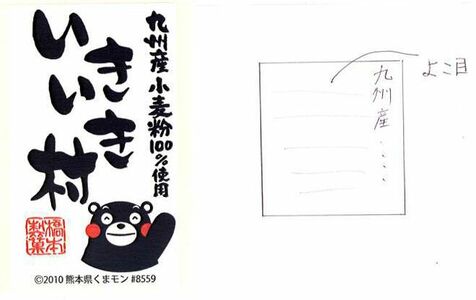 九州産小麦粉100%使用
いきいき村
橋本製菓
©2010 熊本県くまモン #8559
よこ目
九州産・・・・